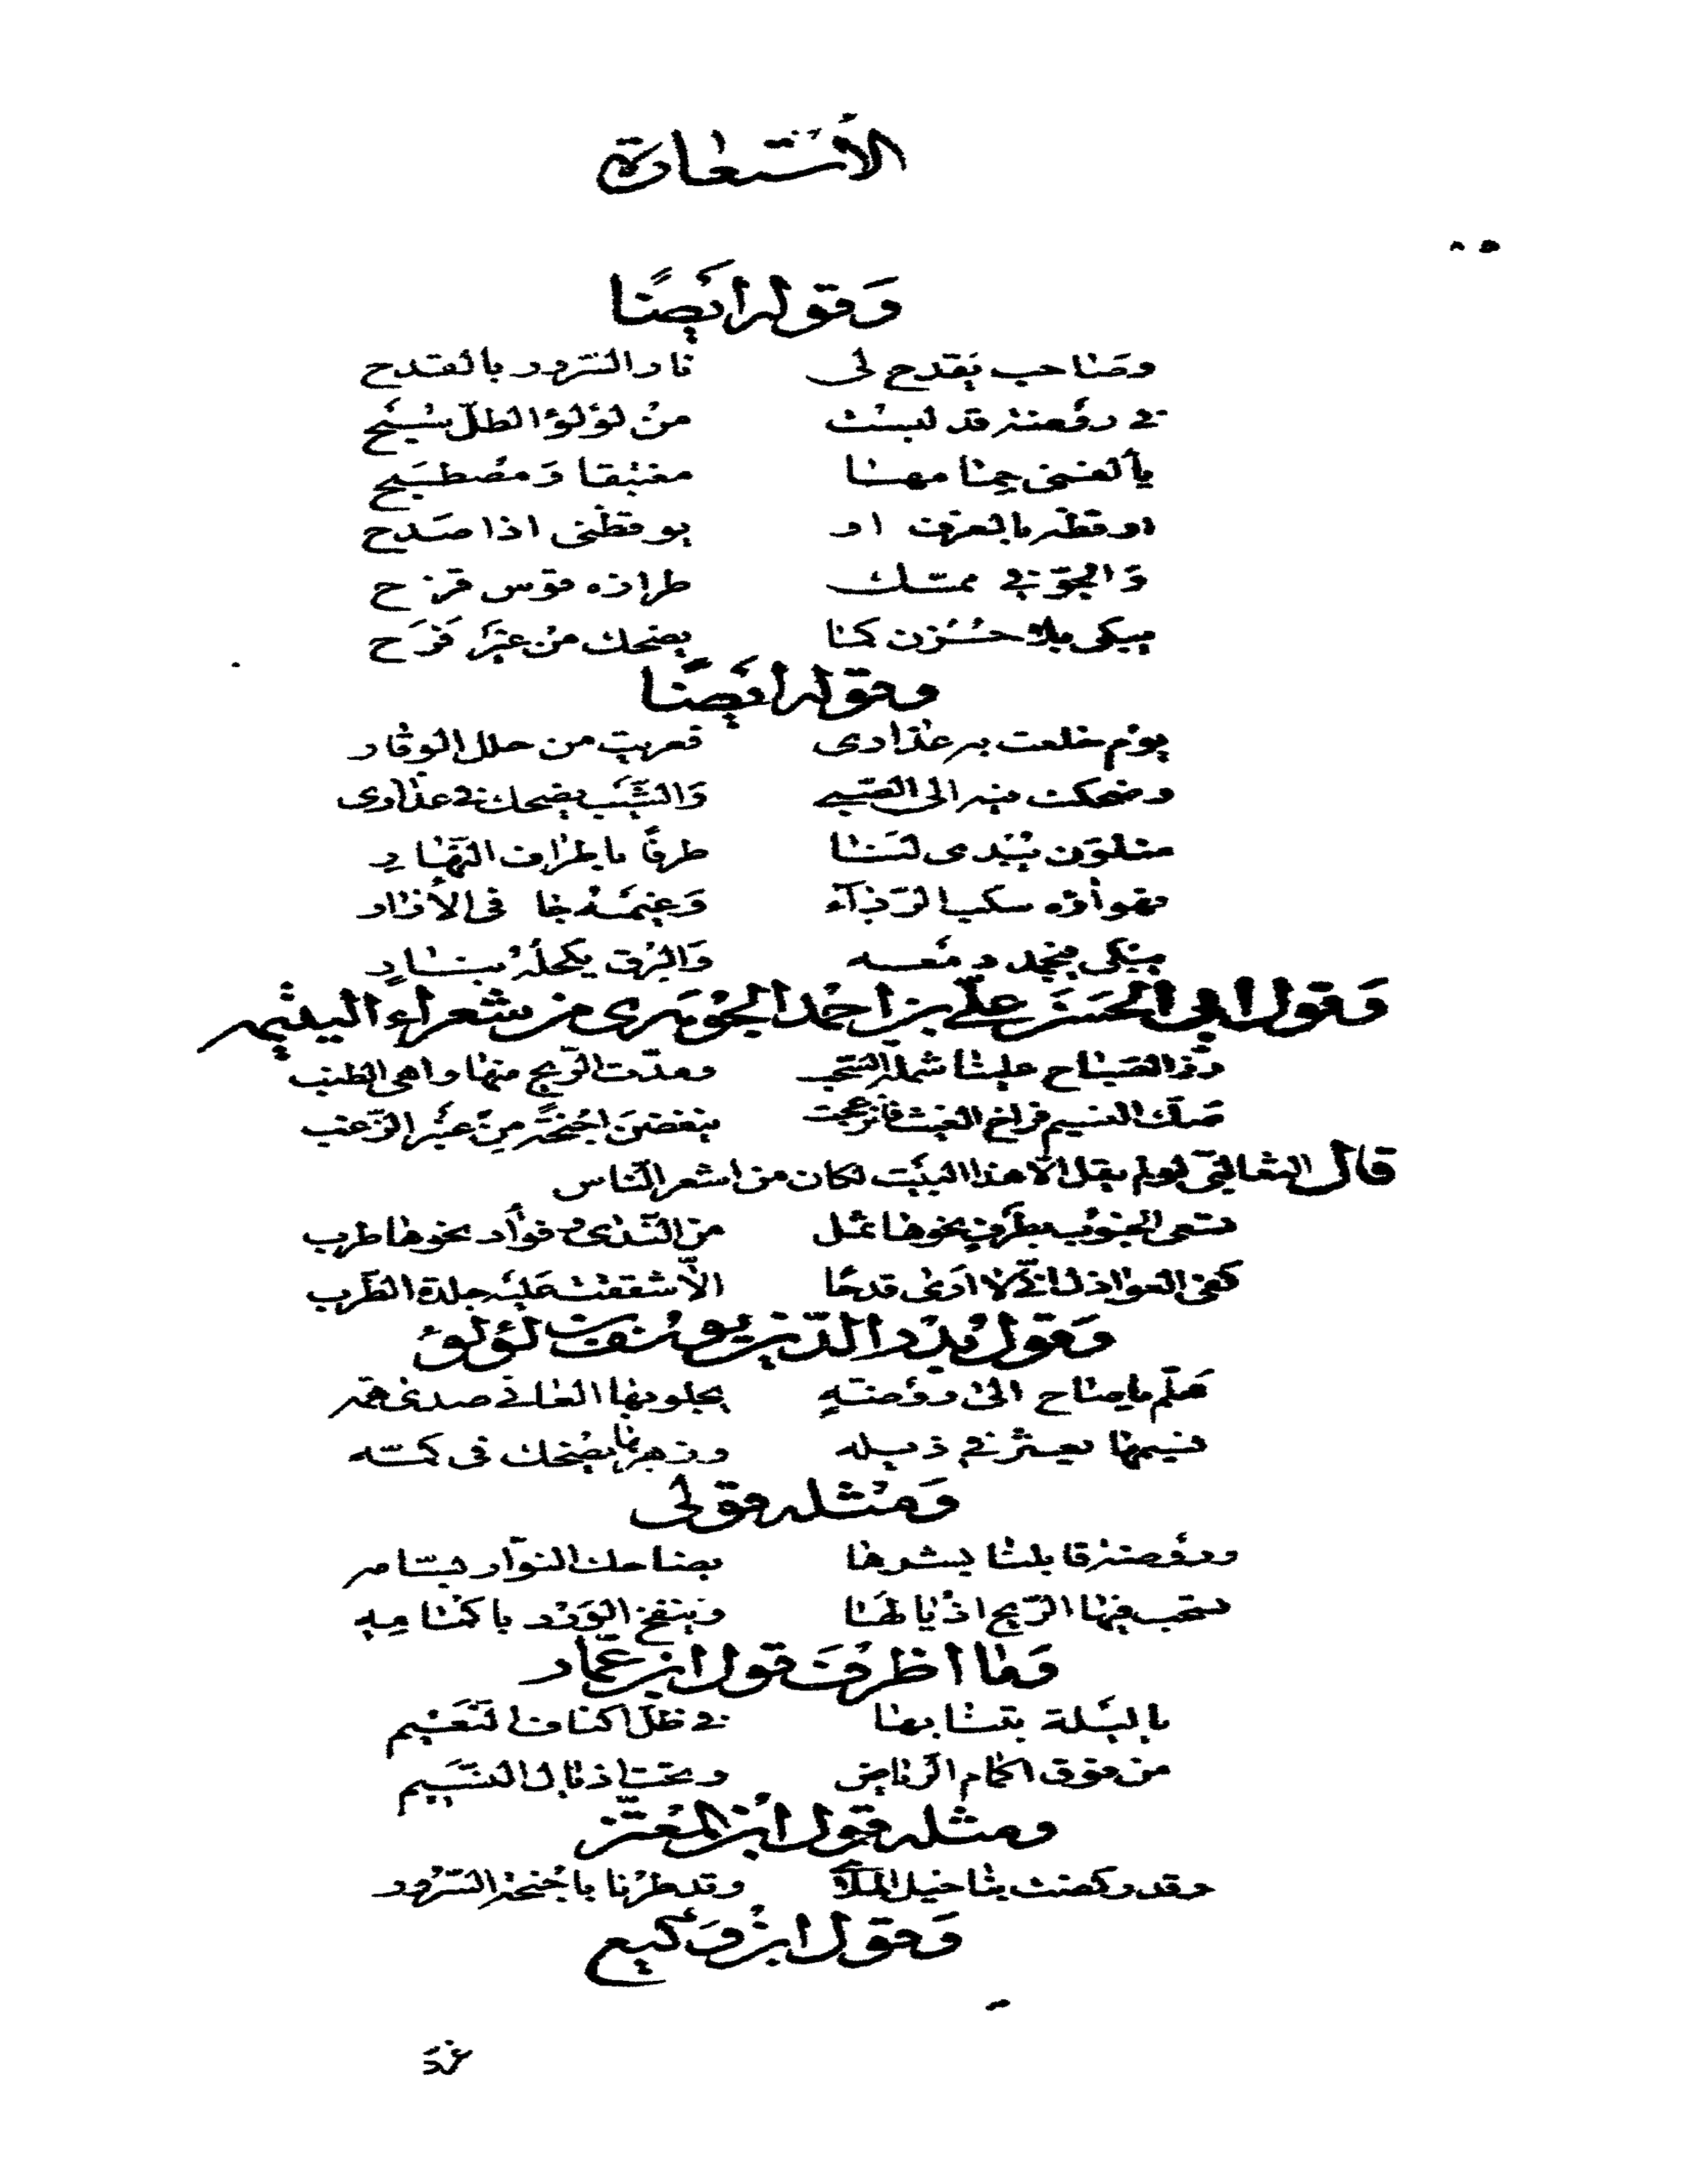 الأستعارة
وَقوله ايضًا
وصاحب يقدح لى نار السرور بالقدح
فى روضة قد لبست من لؤلؤ الطلّ سُبَح
يألفنى حمامها مغتبقا وَمُصطَبح
اوقظه بالعزف او يوقظنى اذا صدح
وَالجوّ فى ممسّك طرازه قوس قزح
يبكى بلا حُزن كما يضحك من غير فَرَح
وقوله ايضًا
يوم خلعت به عذارى فعريت من حلل الوقار
وضحكت فيه الى الصّبى وَالشّيب يضحك فى عذارى
متلوّن يُبدى لنا طرفًا باطراف النّهار
فهواؤه سكب الرّذاء وَغيمه جا فى الأزار
يبكى فيجمد دمعه وَالبرق يكحله بنار
وَقول ابى الحسَن علىّ بن احمد الجوهَرى من شعراء اليتيمه
زرّ الصباح علينا شملة السّحب ومدّت الرّيح منها واهى الطنب
صكّ النسيم فراخ الغيث فانزعجت ينفضن اجنحة مِن عنبر الزّغب
قال الثعالبى لو لم يقل الّا هذا البيت لكان من اشعر النّاس
تسعى الجنوب بطرف نحوها ثمل من النّدى وفؤاد نحوها طرب
كفى العواذل انّى لا ارى قدحا الّا شققت عليه جلدة الطّرب
وَقول بدر الدّين يوسف بن لؤلؤ
هلمّ يا صاح الى روضةٍ يجلو بها العانى صدى همّه
نسيمها يعثر فى ذيله وزهرها يضحك فى كمّه
وَمثله قولى
وروضة قابلنا بشرها بضاحك النوّار بسّامه
تسحب فيها الرّيح اذيالها وينفخ الورد باكمامه
وَما اظرف قول ابن عمّار
يا ليلة بتنا بها فى ظلّ اكناف النّعيم
من فوق اكمام الرّياض وتحت اذيال النّسيم
ومثله قول ابن المعتز
وقد ركضت بنا خيل الملاهى وقد طرنا باجنحة السّرور
وَقول ابن وَكيع
غرّد